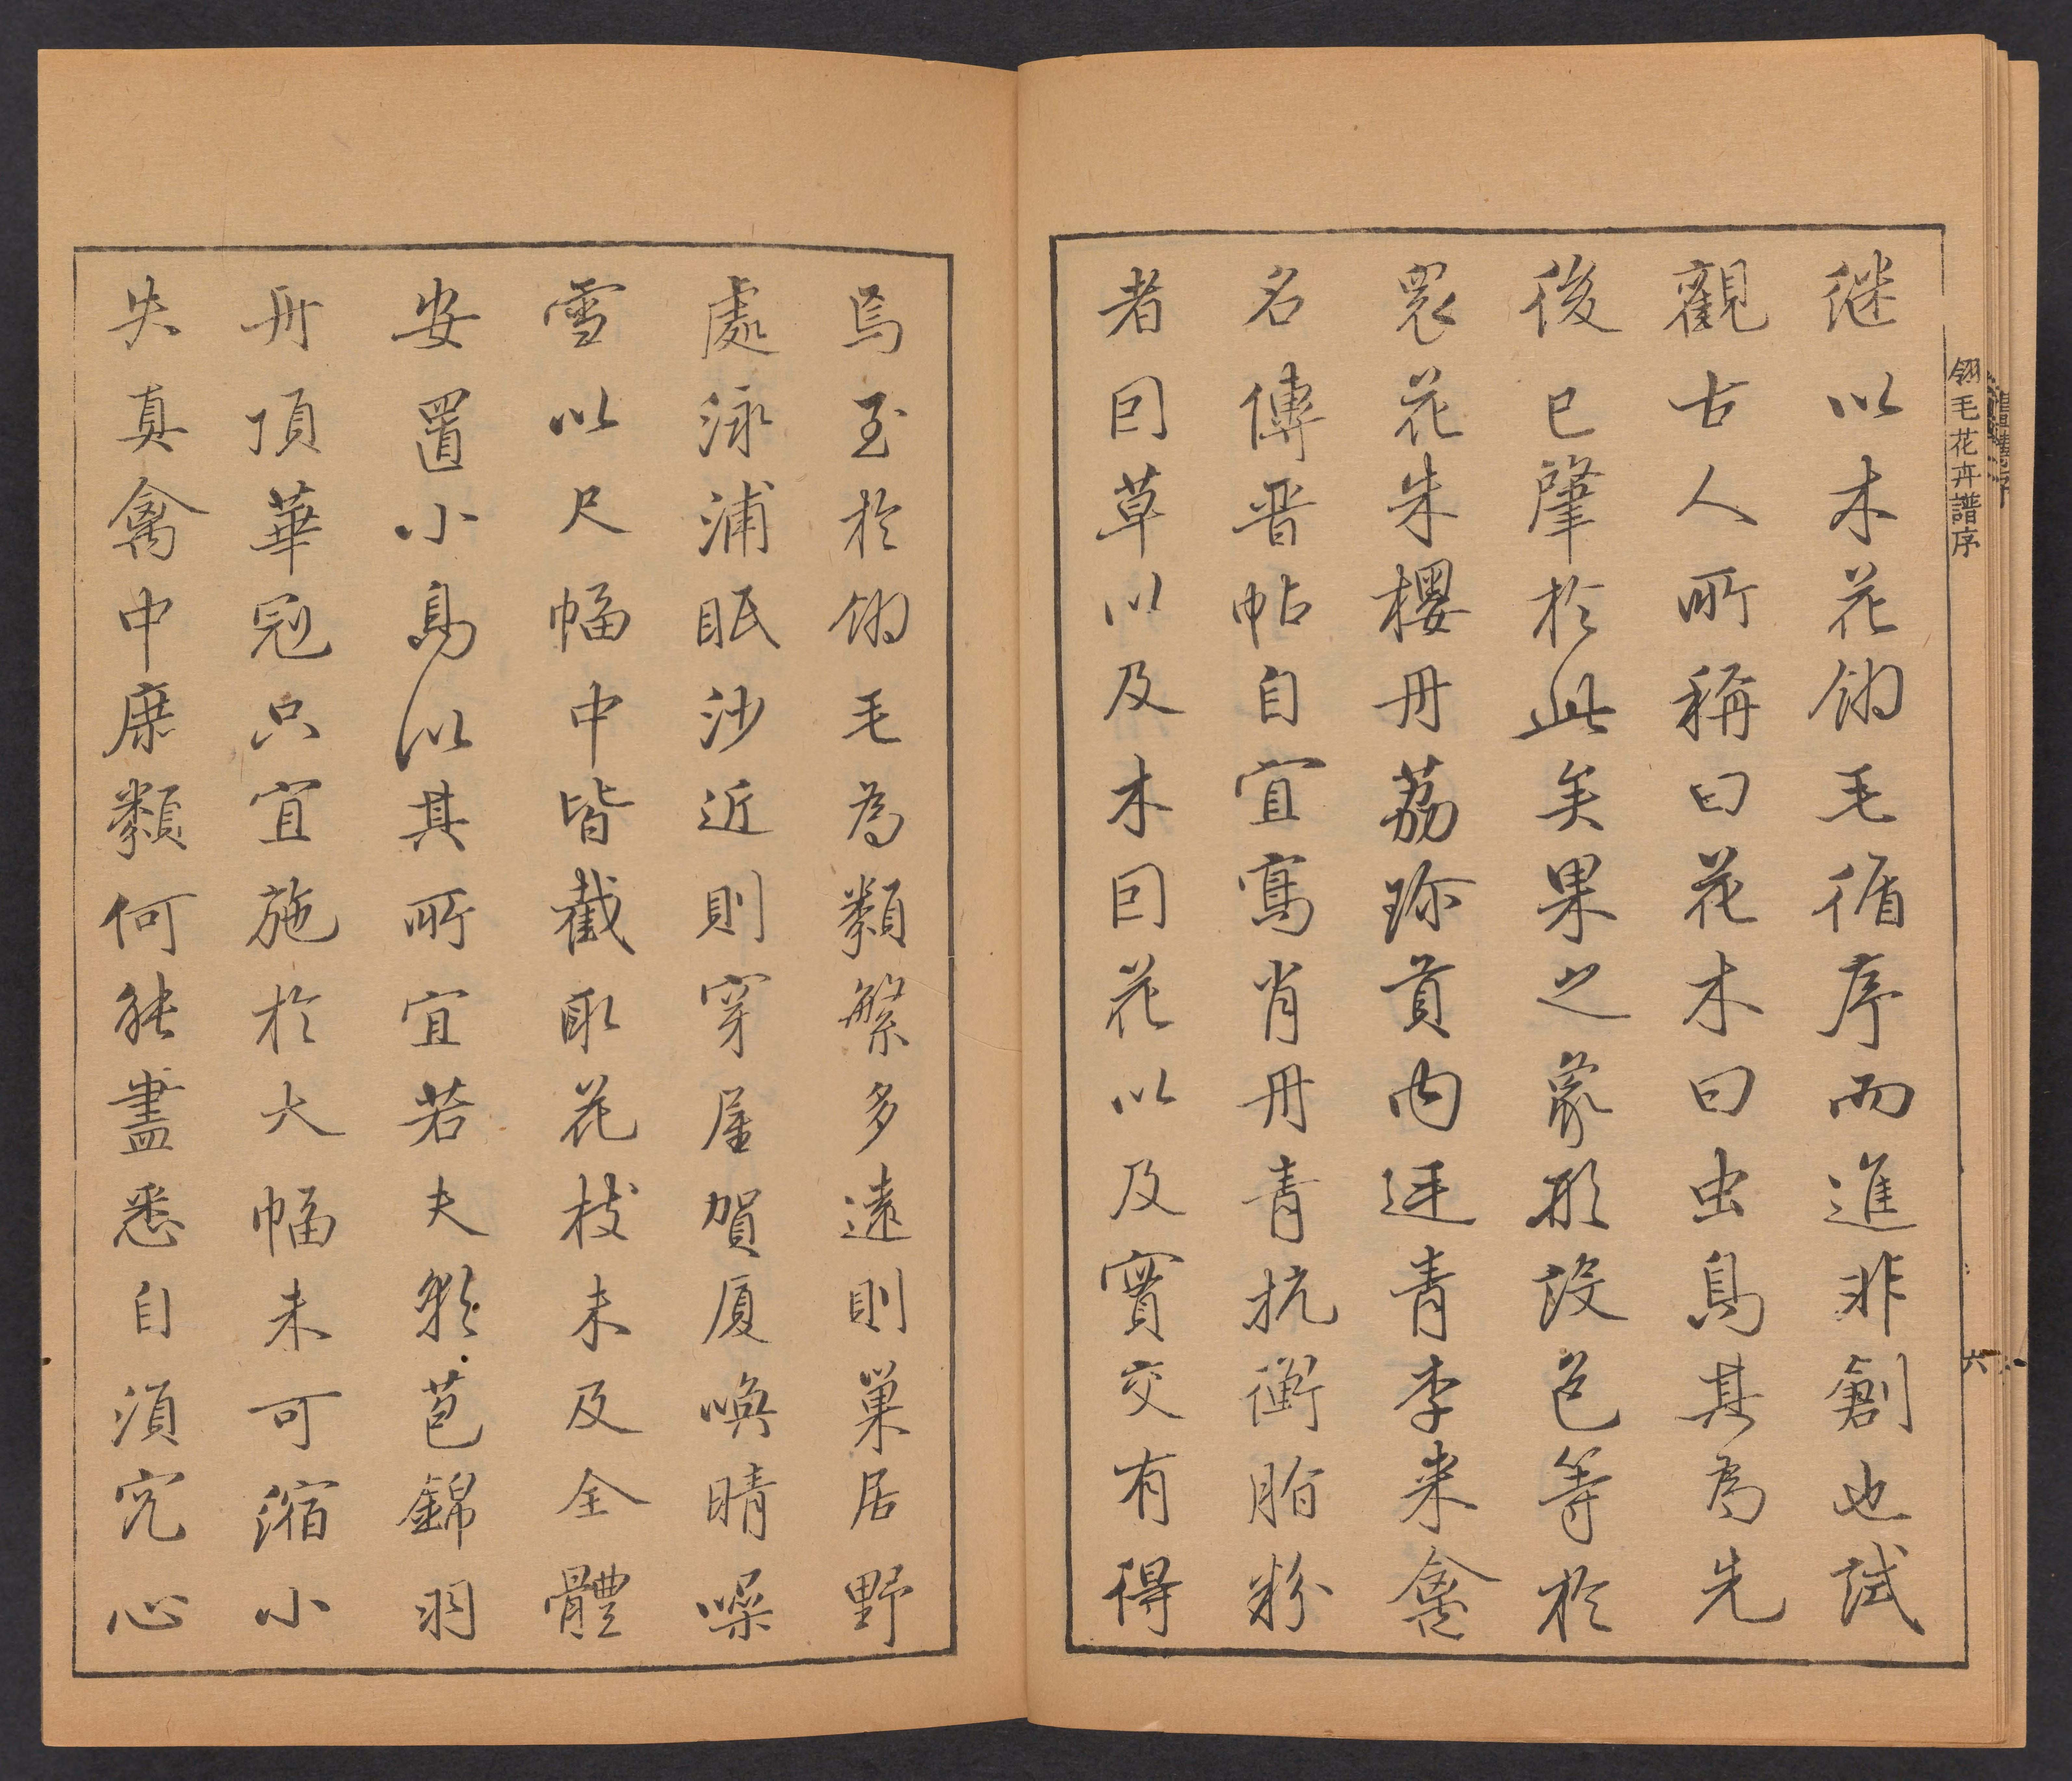 継以木花翎毛循序而進非創也試
觀古人所稱曰花木曰虫鳥其為先
後已肇於此矣果之象形設色等於
衆花朱櫻丹荔珎貢内廷青李来禽
名傳晋帖自宜寫肖丹青抗衡脂粉
者因草以及木因花以及實交有得
翎毛花卉譜序
六
焉至於翎毛為類繁多遠則巢居野
處泳浦眠沙近則穿屋賀厦喚晴噪
雪以尺幅中皆截取花枝未及全體
安置小鳥以其所宜若夫彩苞錦羽
丹頂華冠只宜施於大幅未可縮小
失真禽中庶類何能盡悉自須究心